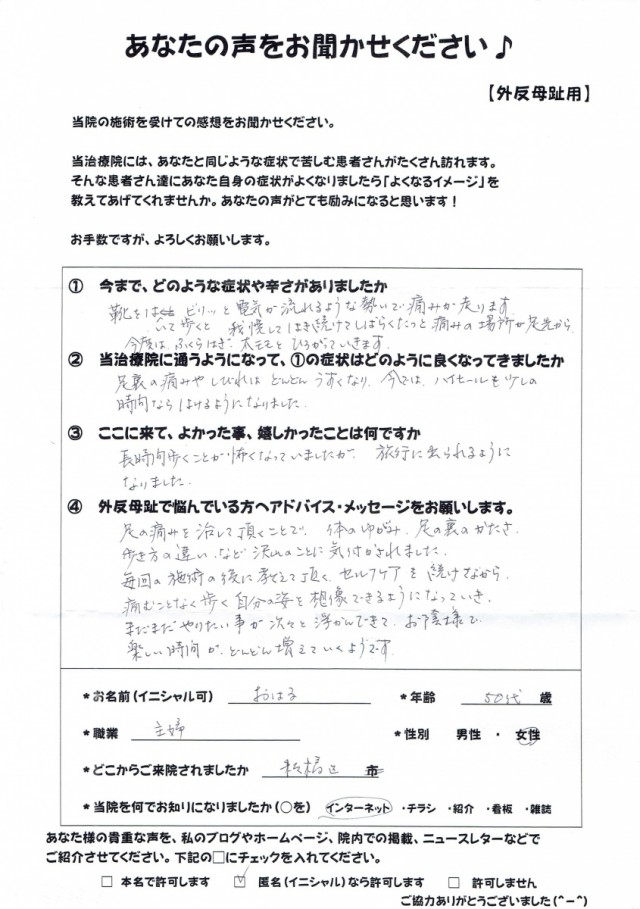 あなたの声をお聞かせください♪
【外反母趾用】
当院の施術を受けての感想をお聞かせください。
当治療院には、あなたと同じような症状で苦しむ患者さんがたくさん訪れます。
そんな患者さん達にあなた自身の症状がよくなりましたら「よくなるイメージ」を
教えてあげてくれませんか。あなたの声がとても励みになると思います！
お手数ですが、よろしくお願いします。
① 今まで、どのような症状や辛さがありましたか
靴をはいて歩くと ビリッと電気が流れるような勢いで痛みが走ります
我慢してはき続けてしばらくたつと痛みの場所が足先から
今度は、ふくらはぎ、太モモとひろがっていきます。
② 当治療院に通うようになって、①の症状はどのように良くなってきましたか
足裏の痛みやしびれはどんどんうすくなり、今では、ハイヒールも少しの
時間ならはけるようになりました。
③ ここに来て、よかった事、嬉しかったことは何ですか
長時間歩くことが怖くなっていましたが、旅行に出られるように
なりました。
④ 外反母趾で悩んでいる方へアドバイス・メッセージをお願いします。
足の痛みを治して頂くことで、体のゆがみ、足の裏のかたさ、
歩き方の違い、など沢山のことに気付かされました。
毎回の施術の後に教えて頂く、セルフケアを続けながら、
痛むことなく歩く自分の姿を想像できるようになっていき、
まだまだやりたい事が次々と浮かんできて、お陰様で
楽しい時間が、どんどん増えていくようです。
*お名前(イニシャル可) おはる *年齢 50代 歳
*職業 主婦 *性別 男性 ・ 女性
*どこからご来院されましたか 板橋区 市
*当院を何でお知りになりましたか(○を) インターネット ・チラシ ・紹介 ・看板 ・雑誌
あなた様の貴重な声を、私のブログやホームページ、院内での掲載、ニュースレターなどで
ご紹介させてください。下記の□にチェックを入れてください。
□ 本名で許可します ☑ 匿名(イニシャル)なら許可します □ 許可しません
ご協力ありがとうございました(^-^)